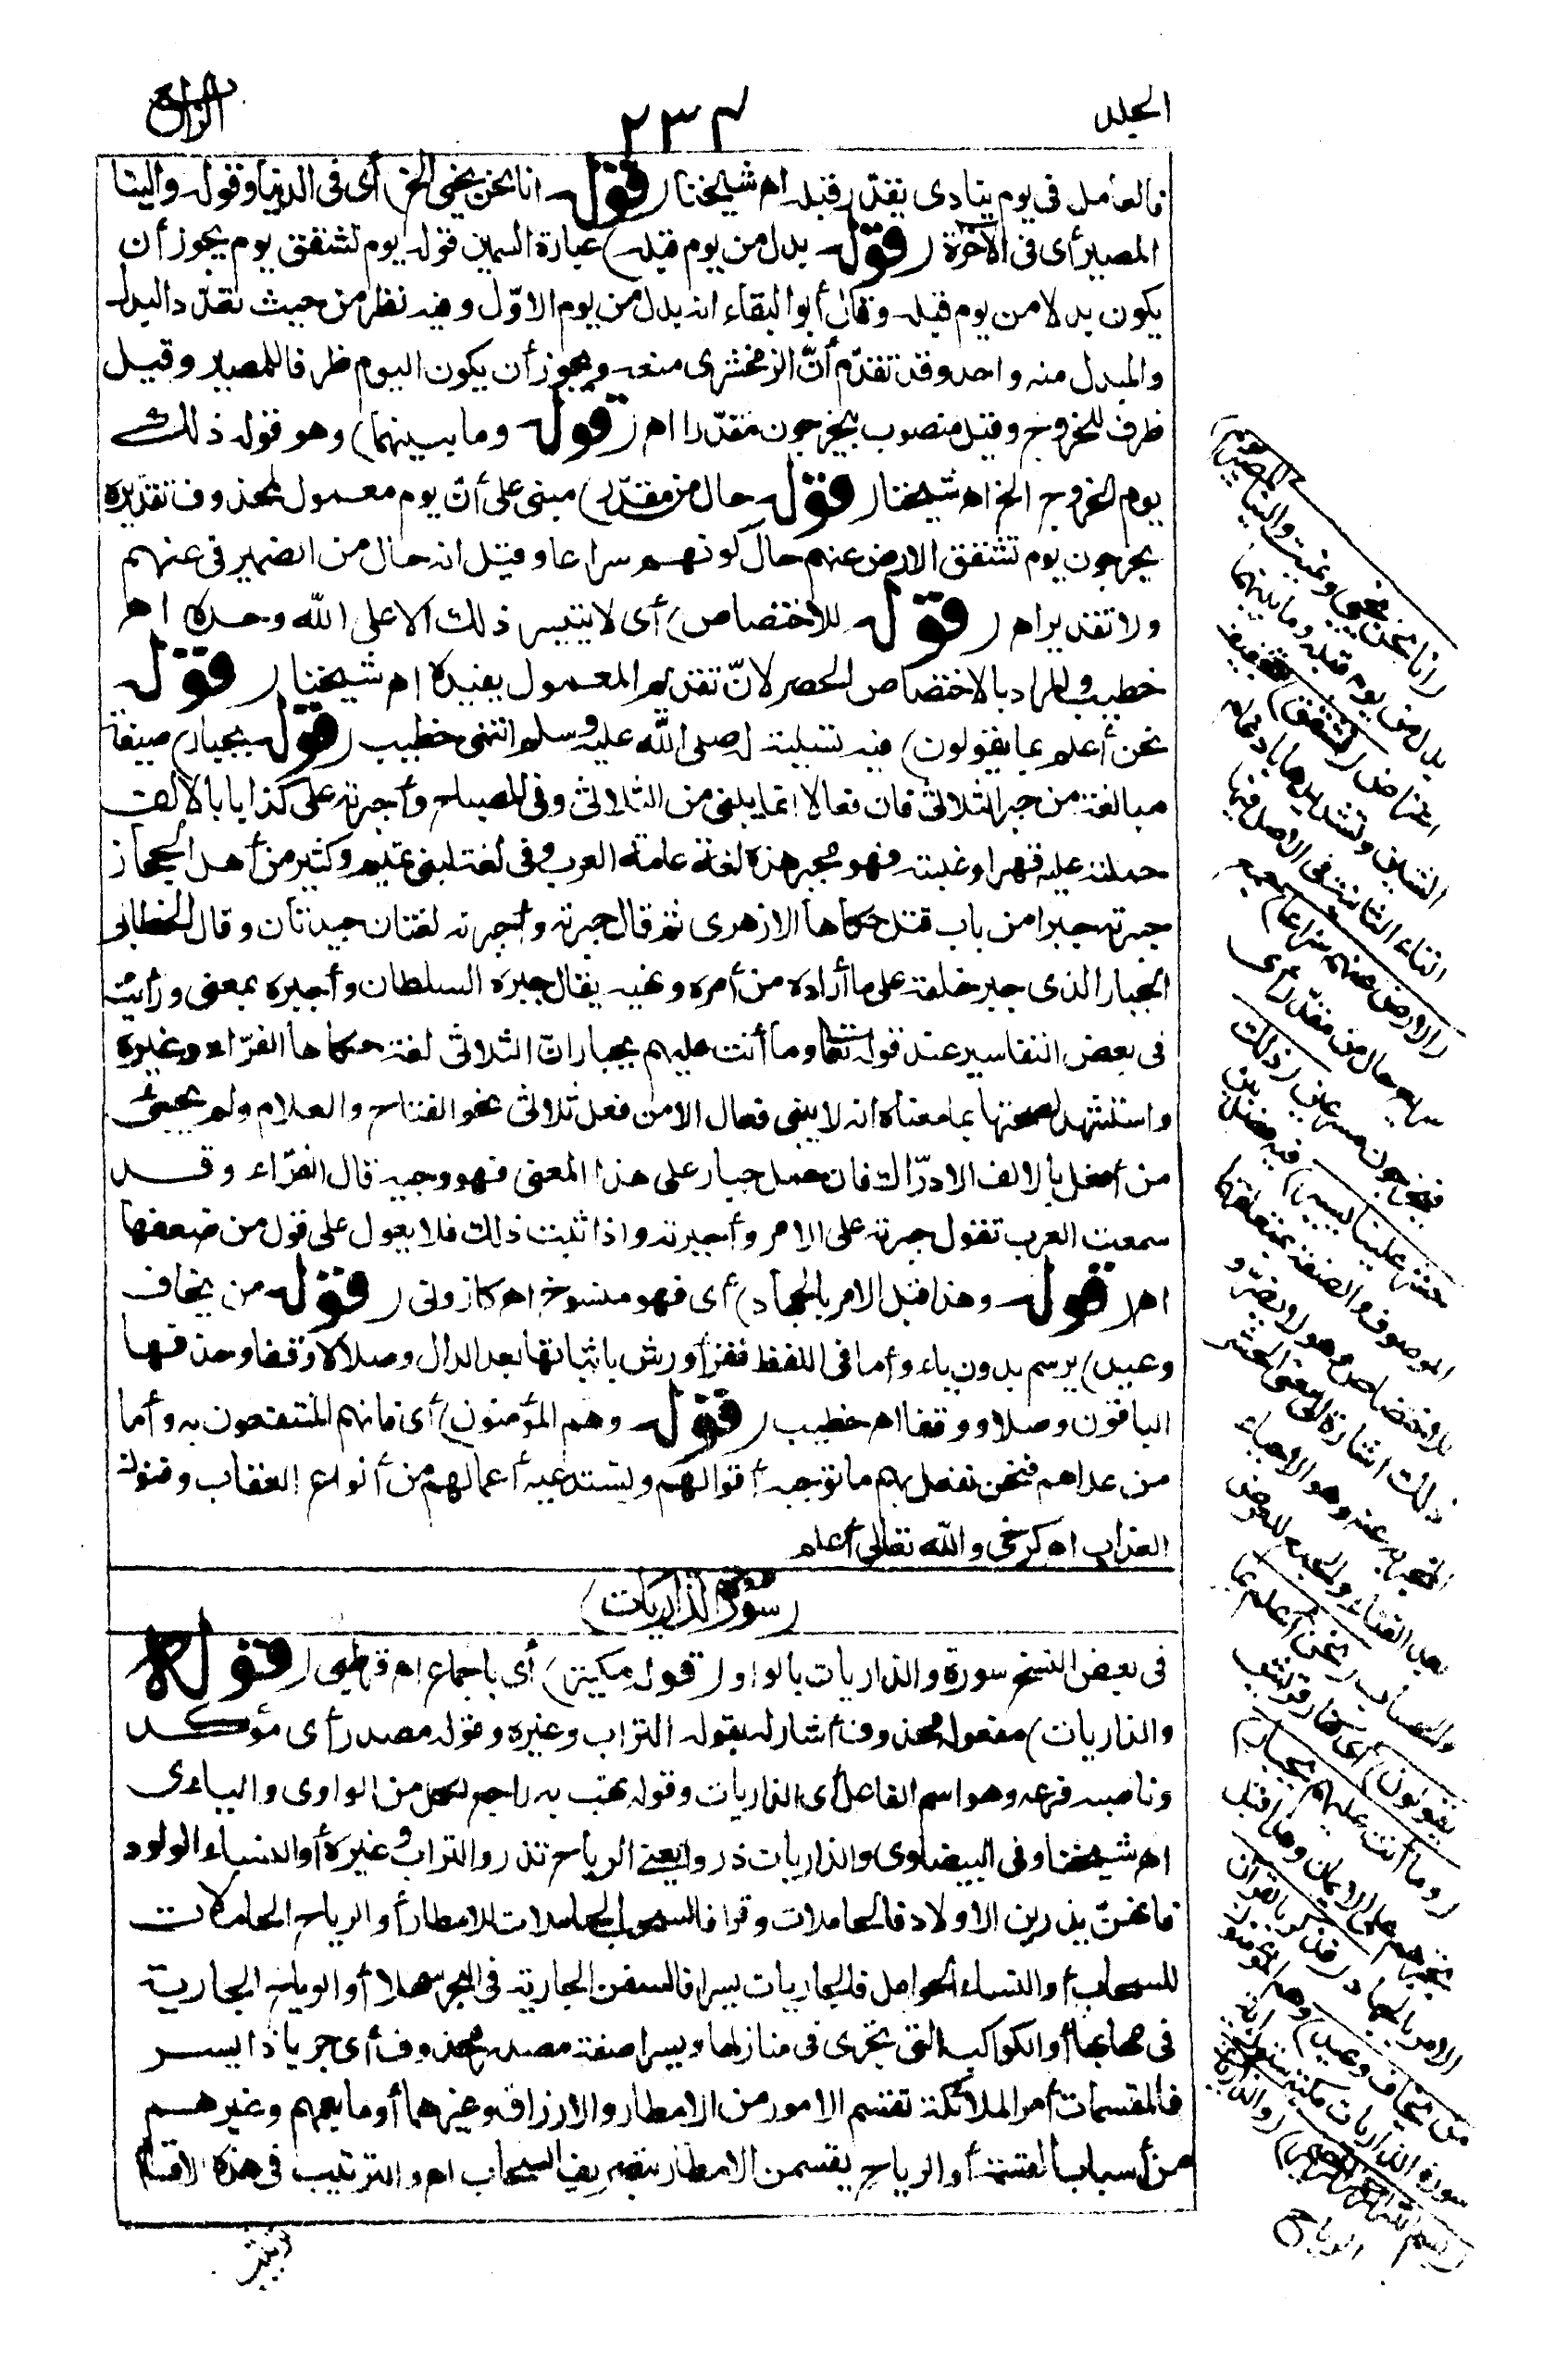 المجلد
٢٣٤
الرابع
فالعامل فى يوم ينادى يقدر قبله اه شيخنا (قوله انا نحن نحيى الخ) أى فى الدنيا وقوله والينا
المصير أى فى الآخرة (قوله بدل من يوم قبله) عبارة السمين قوله يوم تشقق يوم يجوز أن
يكون بدلا من يوم قبله وقال أبو البقاء انه بدل من يوم الاوّل وفيه نظر من حيث تعدّد البدل
والمبدل منه واحد وقد تقدّم أنّ الزمخشرى منعه ويجوز أن يكون اليوم ظرفا للمصير وقيل
ظرف للخروج وقيل منصوب بيخرجون مقدّرا اه (قوله وما بينهما) وهو قوله ذلك
يوم الخروج الخ اه شيخنا (قوله حال من مقدّر) مبنى على أنّ يوم معمول لمحذوف تقديره
يخرجون يوم تشقق الارض عنهم حال كونهم سراعا وقيل انه حال من الضمير فى عنهم
ولا تقدير اه (قوله للاختصاص) أى لا يتيسر ذلك الا على الله وحده اه
خطيب والمراد بالاختصاص الحصر لانّ تقديم المعمول يفيده اه شيخنا (قوله
نحن أعلم بما يقولون) فيه تسلية له صلى الله عليه وسلم انتهى خطيب (قوله بجبار) صيغة
مبالغة من جبر الثلاثى فان فعالا انما يبنى من الثلاثى وفى المصباح وأجبرته على كذا بالالف
حملته عليه قهرا وغلبة فهو مجبر هذه لغة عامة العرب وفى لغة لبنى تميم وكثير من أهل الحجاز
جبرته جبرا من باب قتل حكاها الازهرى ثم قال جبرته وأجبرته لغتان جيدتان وقال الخطابى
الجبار الذى جبر خلقه على ما أراده من أمره ونهيه يقال جبره السلطان وأجبره بمعنى ورأيت
فى بعض التفاسير عند قوله تعالى وما أنت عليهم بجبار انّ الثلاثى لغة حكاها الفرّاء وغيره
واستشهد لصحتها بما معناه انه لا يبنى فعال الا من فعل ثلاثى نحو الفتاح والعلام ولم يجئ
من أفعل بالالف الا درّاك فان حمل جبار على هذا المعنى فهو وجيه قال الفرّاء وقد
سمعت العرب تقول جبرته على الامر وأجبرته واذا ثبت ذلك فلا يعول على قول من ضعفها
اه (قوله وهذا قبل الامر بالجهاد) أى فهو منسوخ اه كازرونى (قوله من يخاف
وعيد) يرسم بدون ياء وأما فى اللفظ فقرأ ورش باثباتها بعد الدال وصلا لا وقفا وحذفها
الباقون وصلا ووقفا اه خطيب (قوله وهم المؤمنون) أى فانهم المنتفعون به وأما
من عداهم فنحن نفعل بهم ما توجبه أقوالهم وتستدعيه أعمالهم من أنواع العقاب وفنون
العذاب اه كرخى والله تعالى أعلم
(سورة الذاريات)
فى بعض النسخ سورة والذاريات بالواو (قوله مكية) أى باجماع اه قرطبى (قوله
والذاريات) مفعوله محذوف أشار له بقوله التراب وغيره وقوله مصدر أى مؤكد
وناصبه فرعه وهو اسم الفاعل أى الذاريات وقوله تهب به راجع لكل من الواوى واليائى
اه شيخنا وفى البيضاوى والذاريات ذروا يعنى الرياح تذروا التراب وغيره أو النساء الولود
فانهنّ يذرين الاولاد فالحاملات وقرا فالسحب الحاملات للامطار أو الرياح الحاملات
للسحاب أو النساء الحوامل فالجاريات يسرا فالسفن الجارية فى البحر سهلا أو الرياح الجارية
فى مهابها أو الكواكب التى تجرى فى منازلها ويسرا صفة مصدر محذوف أى جريا ذا يسر
فالمقسمات أمرا الملائكة تقسم الامور من الامطار والارزاق وغيرهما أو ما يعمهم وغيرهم
من أسباب القسمة أو الرياح يقسمن الامطار بتصريف السحاب اه والترتيب فى هذه الاقسام
(انا نحن نحيى ونميت والينا المصير يوم)
بدل من يوم قبله وما بينهما
اعتراض (تشقق) بتخفيف
الشين وتشديدها بادغام
التاء الثانية فى الاصل فيها
(الارض عنهم سراعا) جمع
سريع حال من مقدّر أى
فيخرجون مسرعين (ذلك
حشر علينا يسير) فيه فصل بين
الموصوف والصفة بمتعلقها
للاختصاص وهو لا يضرّ و
ذلك اشارة الى معنى الحشر
المخبر به عنه وهو الاحياء
بعد الفناء والجمع للعرض
والحساب (نحن أعلم بما
يقولون) أى كفار قريش
(وما أنت عليهم بجبار)
تجبرهم على الايمان وهذا قبل
الامر بالجهاد (فذكر بالقرآن
من يخاف وعيد) وهم المؤمنون
سورة الذاريات مكية ستون آية
(بسم الله الرحمن الرحيم) (والذاريات)
الرياح